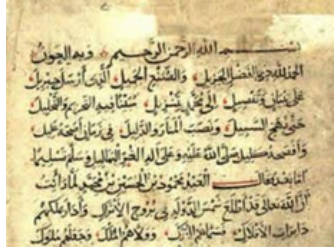 بسم الله الرحمن الرحيم وبه العون
الحمد لله ذي الفضل الجزيل والصنع الجميل الذي أرسل جبريل
على بيان وتفصيل إلى محمد بتنزيل فيه التحريم والتحليل
حتى نهج السبيل ونصب المنار والدليل في زمان
وأفصحه كليل صلى الله عليه وعلى آله الغر البهاليل وسلم تسليما
أما بعد قال العبد محمود بن الحسين بن محمد لما رأيت
أن الله تعالى قد أطلع شمس الدولة في بروج الأتراك وأدار بملكهم
دائرات الأفلاك فسماهم الترك وولاهم الملك وجعلهم ملوك